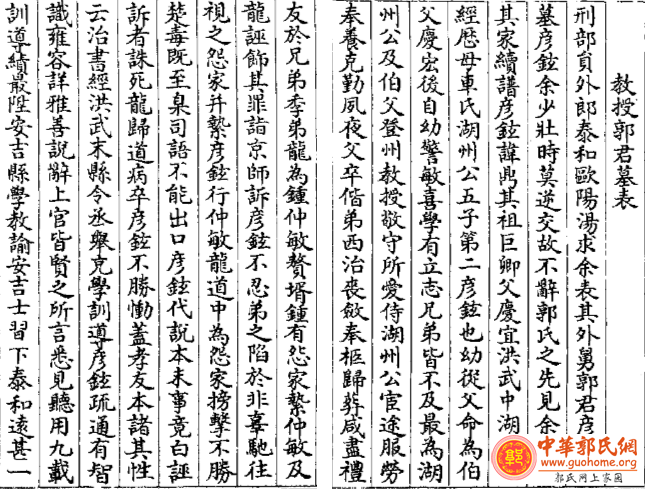 教授郭君墓表
刑部員外郎泰和歐陽湯求余表其外舅郭君彥鉉
墓彥鉉余少壯時莫逆交故不辭郭氏之先見余
其家續譜彥鉉諱鼎其祖巨卿父慶宜洪武中湖
經歷母車氏湖州公五子第二彥鉉也幼從父命為伯
父慶宏後自幼警敏喜學有立志兄弟皆不及最為湖
州公及伯父登州教授敬守所愛侍湖州公官途服勞
奉養克勤夙夜父卒偕弟西治喪斂奉柩歸葬咸盡禮
友於兄弟季弟龍為鍾仲敏贅壻鍾有怨家縶仲敏及
龍誣飾其罪詣京師訴彥鉉不忍弟之陷於非辜馳往
視之怨家并縶彥鉉行仲敏龍道中為怨家搒擊不勝
楚毒既至臬司語不能出口彥鉉代說本末事竟白誣
訴者誅死龍歸道病卒彥鉉不勝慟蓋孝友本諸其性
云治書經洪武末縣令丞舉克學訓導彥鉉疏通有智
識雍容詳雅善說辭上官皆賢之所言悉見聽用九載
訓導績最陞安吉縣學教諭安吉士習下泰和遠甚一
中華郭氏網
www.guohome.org
郭氏网上家园